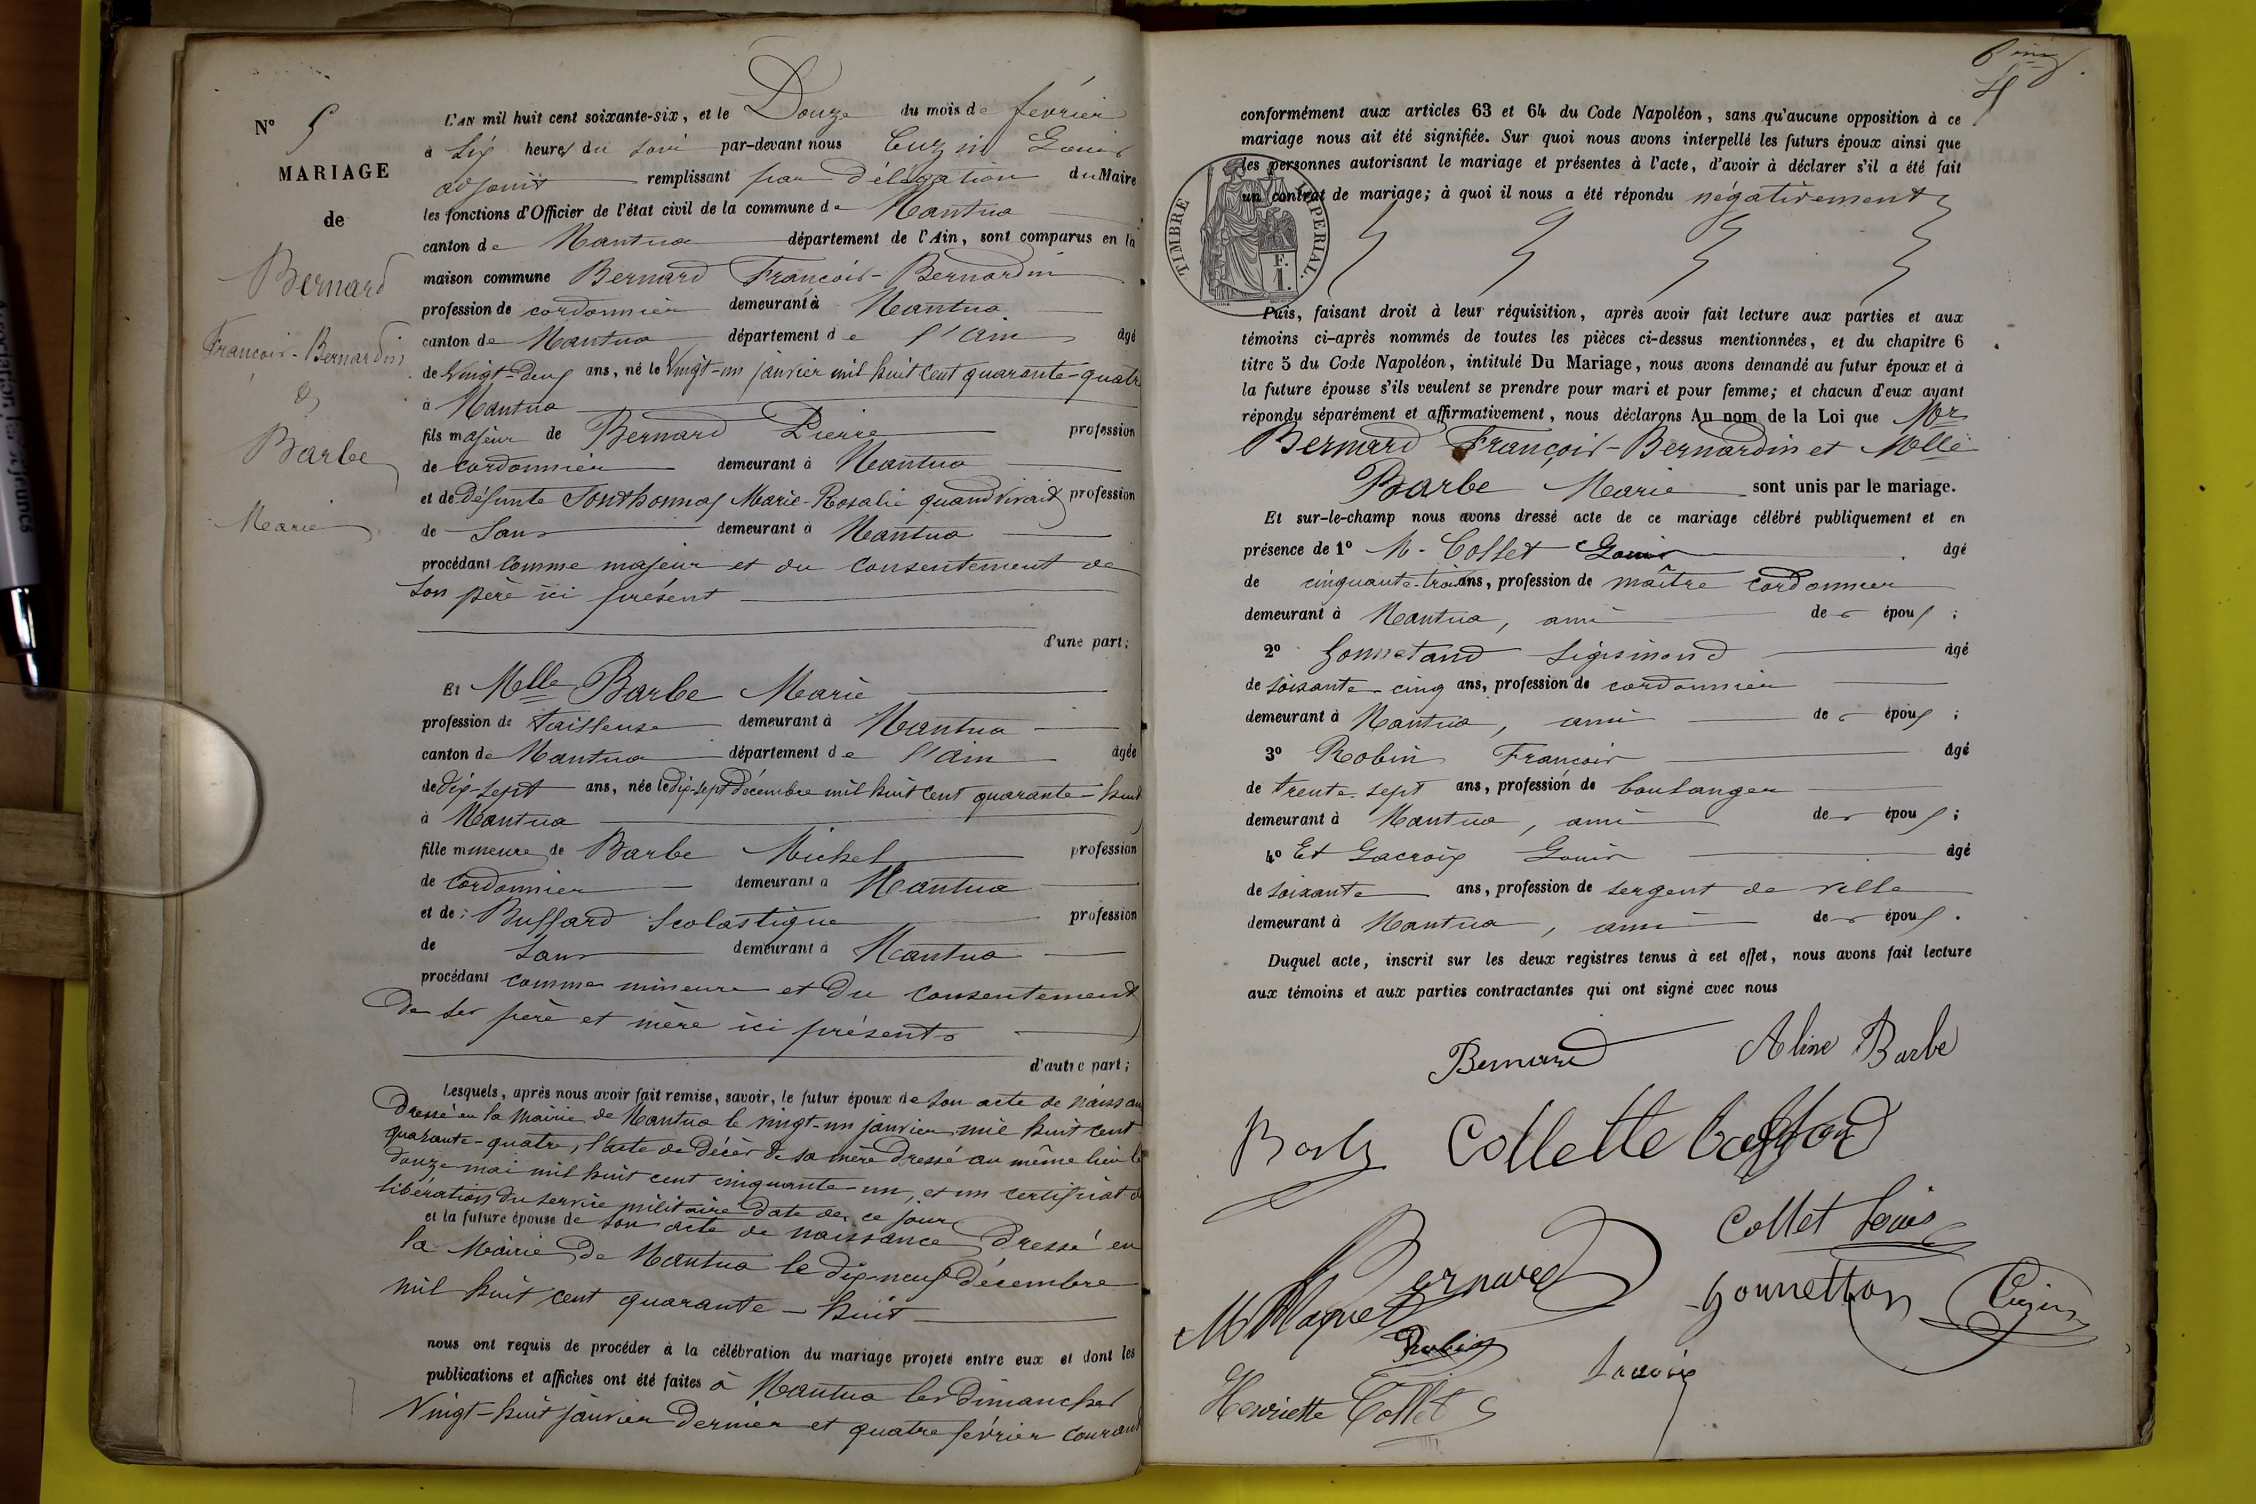 N° 5
MARIAGE
de
Bernard
François-Bernardin
&
Barbe
Marie
L'AN mil huit cent soixante-six, et le Douze du mois de février
à Six heures du soir par-devant nous Cuzin Louis
adjoint remplissant par délégation du Maire
les fonctions d'Officier de l'état civil de la commune de Nantua
canton de Nantua département de l'Ain, sont comparus en la
maison commune Bernard François-Bernardin
profession de cordonnier demeurant à Nantua
canton de Nantua département de l'ain âgé
de Vingt-deux ans, né le Vingt-un janvier mil huit cent quarante-quatre
à Nantua
fils majeur de Bernard Pierre profession
de cordonnier demeurant à Nantua
et de défunte Sonthonnax Marie-Rosalie quand vivait profession
de Sans demeurant à Nantua
procédant comme majeur et du consentement de
son père ici présent
d'une part;
Et Melle Barbe Marie
profession de tailleuse demeurant à Nantua
canton de Nantua département de l'ain âgée
de dix-sept ans, née le dix-sept décembre mil huit cent quarante-huit
à Nantua
fille mineure de Barbe Michel profession
de cordonnier demeurant à Nantua
et de Buffard Scolastique profession
de Sans demeurant à Nantua
procédant comme mineure et du consentement
de ses père et mère ici présents
d'autre part;
Lesquels, après nous avoir fait remise, savoir, le futur époux de son acte de naissan
dressé en la Mairie de Nantua le vingt-un janvier mil huit cent
quarante-quatre, l'acte de décès de sa mère dressé au même lieu le
douze mai mil huit cent cinquante-un, et un certificat de
libération du service militaire date de ce jour
et la future épouse de son acte de naissance dressé en
la Mairie de Nantua le dix-neuf décembre
mil huit cent quarante-huit
nous ont requis de procéder à la célébration du mariage projeté entre eux et dont les
publications et affiches ont été faites à Nantua les dimanches
Vingt-huit janvier dernier et quatre février courant
conformément aux articles 63 et 64 du Code Napoléon, sans qu'aucune opposition à ce
mariage nous ait été signifiée. Sur quoi nous avons interpellé les futurs époux ainsi que
les personnes autorisant le mariage et présentes à l'acte, d'avoir à déclarer s'il a été fait
un contrat de mariage; à quoi il nous a été répondu négativement
TIMBRE IMPERIAL.
F.
1.
Puis, faisant droit à leur réquisition, après avoir fait lecture aux parties et aux
témoins ci-après nommés de toutes les pièces ci-dessus mentionnées, et du chapitre 6
titre 5 du Code Napoléon, intitulé Du Mariage, nous avons demandé au futur époux et à
la future épouse s'ils veulent se prendre pour mari et pour femme; et chacun d'eux ayant
répondu séparément et affirmativement, nous déclarons Au nom de la Loi que Mr
Bernard François-Bernardin et Melle
Barbe Marie sont unis par le mariage.
Et sur-le-champ nous avons dressé acte de ce mariage célébré publiquement et en
présence de 1° M. Collet Louis âgé
de cinquante-trois ans, profession de maître cordonnier
demeurant à Nantua, ami des époux;
2° Gonnetand Sigismond âgé
de soixante-cinq ans, profession de cordonnier
demeurant à Nantua, ami des époux;
3° Robin François âgé
de trente-sept ans, profession de boulanger
demeurant à Nantua, ami des époux;
4° Et Lacroix Louis âgé
de soixante ans, profession de sergent de ville
demeurant à Nantua, ami des époux.
Duquel acte, inscrit sur les deux registres tenus à cet effet, nous avons fait lecture
aux témoins et aux parties contractantes qui ont signé avec nous
Bernard Aline Barbe
Barbe Collette buffard
Collet Louis
Bernard
Cuzin
Robin
Lacroix
Henriette Collet